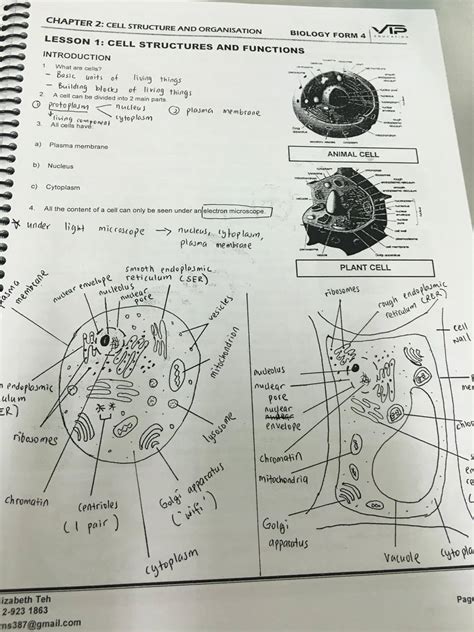 CHAPTER 2: CELL STRUCTURE AND ORGANISATION
BIOLOGY FORM 4
VIP
EDUCATION
LESSON 1: CELL STRUCTURES AND FUNCTIONS
INTRODUCTION
1 What are cells?
- Basic units of living things
- Building blocks of living things
2. A cell can be divided into 2 main parts.
① protoplasm nucleus ② plasma membrane
living component cytoplasm
3. All cells have:
a) Plasma membrane
b) Nucleus
c) Cytoplasm
4. All the content of a cell can only be seen under an electron microscope.
* under light microscope → nucleus, cytoplasm,
plasma membrane
ANIMAL CELL
PLANT CELL
plasma
membrane
nuclear envelope
nucleolus
nuclear
pore
smooth endoplasmic
reticulum (SER)
vesicles
mitochondrion
lysosome
Golgi apparatus
("wifi")
cytoplasm
centrioles
(1 pair)
chromatin
ribosomes
endoplasmic
ulum
ER)
ribosomes
rough endoplasmic
reticulum (RER)
cell
wall
nucleolus
nuclear
pore
nuclear
envelope
chromatin
mitochondria
Golgi
apparatus
vacuole
cytopla
lizabeth Teh
2-923 1863
ns387@gmail.com
Page